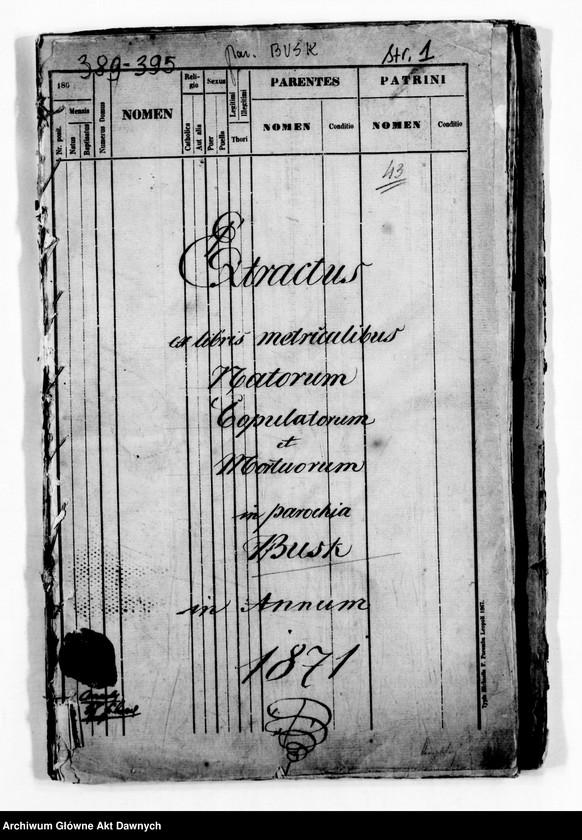 389-395
Par. BUSK
str. 1
186
Mensis
Nr. posit.
Natus
Baptisatus
Numerus Domus
NOMEN
Religio
Catholica
Aut alia
Sexus
Puer
Puella
Legitimi
Illegitimi
Thori
PARENTES
NOMEN
Conditio
PATRINI
NOMEN
Conditio
43
Extractus
ex libris metriculibus
Natorum
Copulatorum
et
Mortuorum
in parochia
Busk
in Annum
1871
Archiwum Główne Akt Dawnych